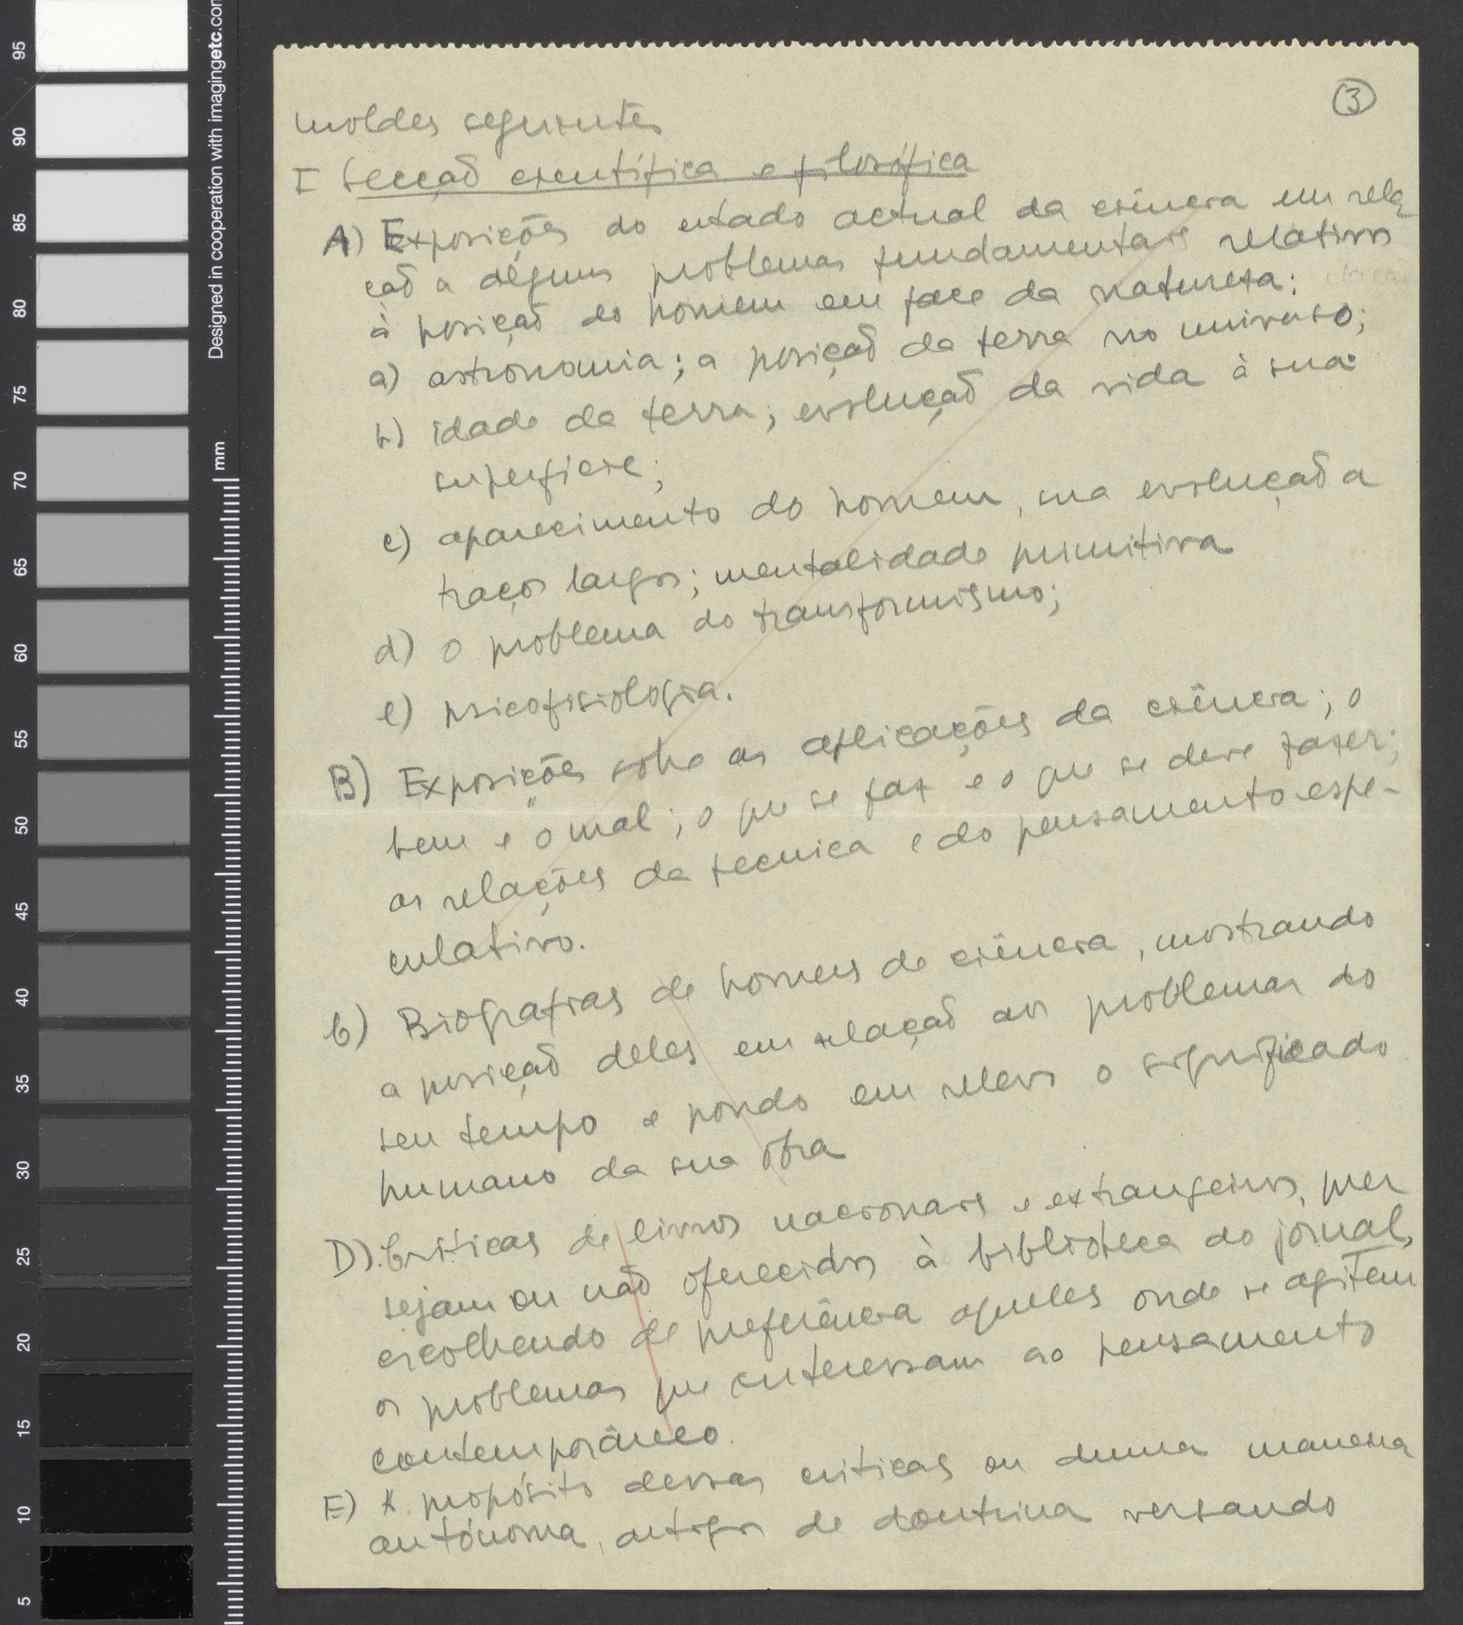 3
moldes seguintes
I Secção científica e filosófica
A) Exposições do estado actual da ciência em rela-
ção a alguns problemas fundamentais relativos
à posição do homem em face da natureza:
a) astronomia; a posição da terra no universo;
b) idade da terra; evolução da vida à sua
superfície;
c) aparecimento do homem, sua evolução a
traços largos; mentalidade primitiva
d) o problema do transformismo;
e) psicofisiologia.
B) Exposições sobre as aplicações da ciência; o
bem e o mal; o que se faz e o que se deve fazer;
as relações da tecnica e do pensamento espe-
culativo.
C) Biografias de homens de ciência, mostrando
a posição deles em relação aos problemas do
seu tempo e pondo em relevo o significado
humano da sua obra
D) Críticas de livros nacionais e extrangeiros, quer
sejam ou não oferecidos à biblioteca do jornal,
escolhendo de preferência aqueles onde se agitem
os problemas que interessam ao pensamento
contemporâneo.
E) A propósito dessas criticas ou duma maneira
autónoma, artigos de doutrina versando
95
90
85
80
75
70
65
60
55
50
45
40
35
30
25
20
15
10
5
mm
Designed in cooperation with imagingetc.com